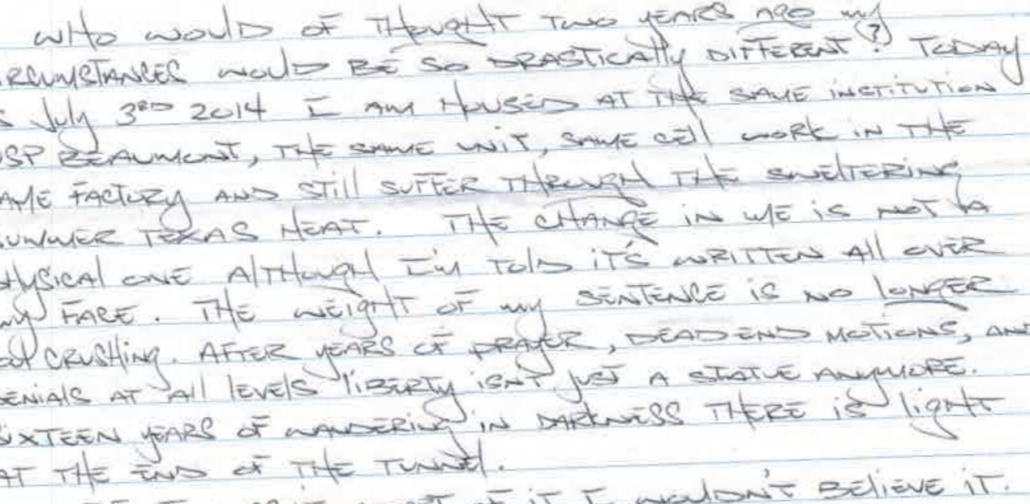 WHO WOULD OF THOUGHT TWO YEARS AGO My
RCUMSTANCES WOULD BE SO DRASTICALLY DIFFERENT(?) TODAY
S July 3RD 2014 I AM HOUSED AT THE SAME INSTITUTION
SP BEAUMONT, THE SAME UNIT, SAME CEll WORK IN THE
AME FACTORY AND STIll SUFFER THROUGH THE SWELTERING
SUMMER TEXAS HEAT. THE CHANGE IN ME IS NOT A
HYSICAL ONE AlTHOUGH I'M TOlD IT'S WRITTEN All OVER
My FACE. THE WEIGHT OF My SENTENCE IS NO lONGER
CRUSHING. AFTER YEARS OF PRAYER, DEAD END MOTIONS, AN
ENIAlS AT All lEVElS lIBERTY ISN'T JUST A STATUE ANYMORE.
IXTEEN YEARS OF WANDERING IN DARKNESS THERE IS lIGHT
AT THE END OF THE TUNNEl.
OF IT I WOULDN'T BELIEVE IT.